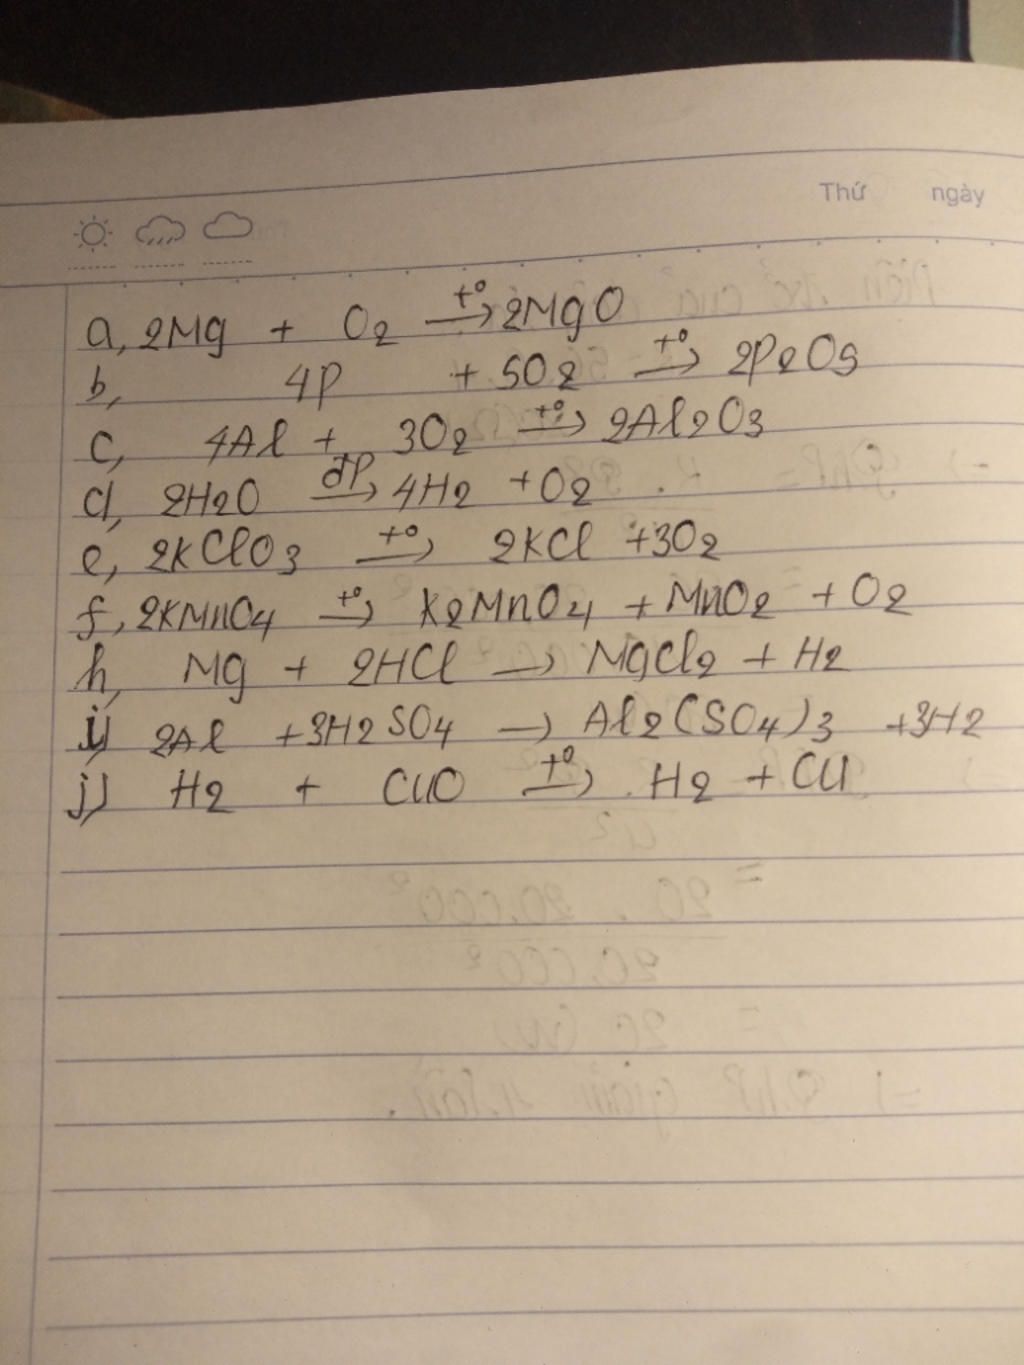 Thứ ngày
a, 2Mg + O2 t° → 2MgO
b, 4P + 5O2 t° → 2P2O5
c, 4Al + 3O2 t° → 2Al2O3
d, 2H2O đp → 4H2 + O2
e, 2KClO3 t° → 2KCl + 3O2
f, 2KMnO4 t° → K2MnO4 + MnO2 + O2
h, Mg + 2HCl → MgCl2 + H2
i) 2Al + 3H2SO4 → Al2(SO4)3 + 3H2
j) H2 + CuO t° → H2 + Cu